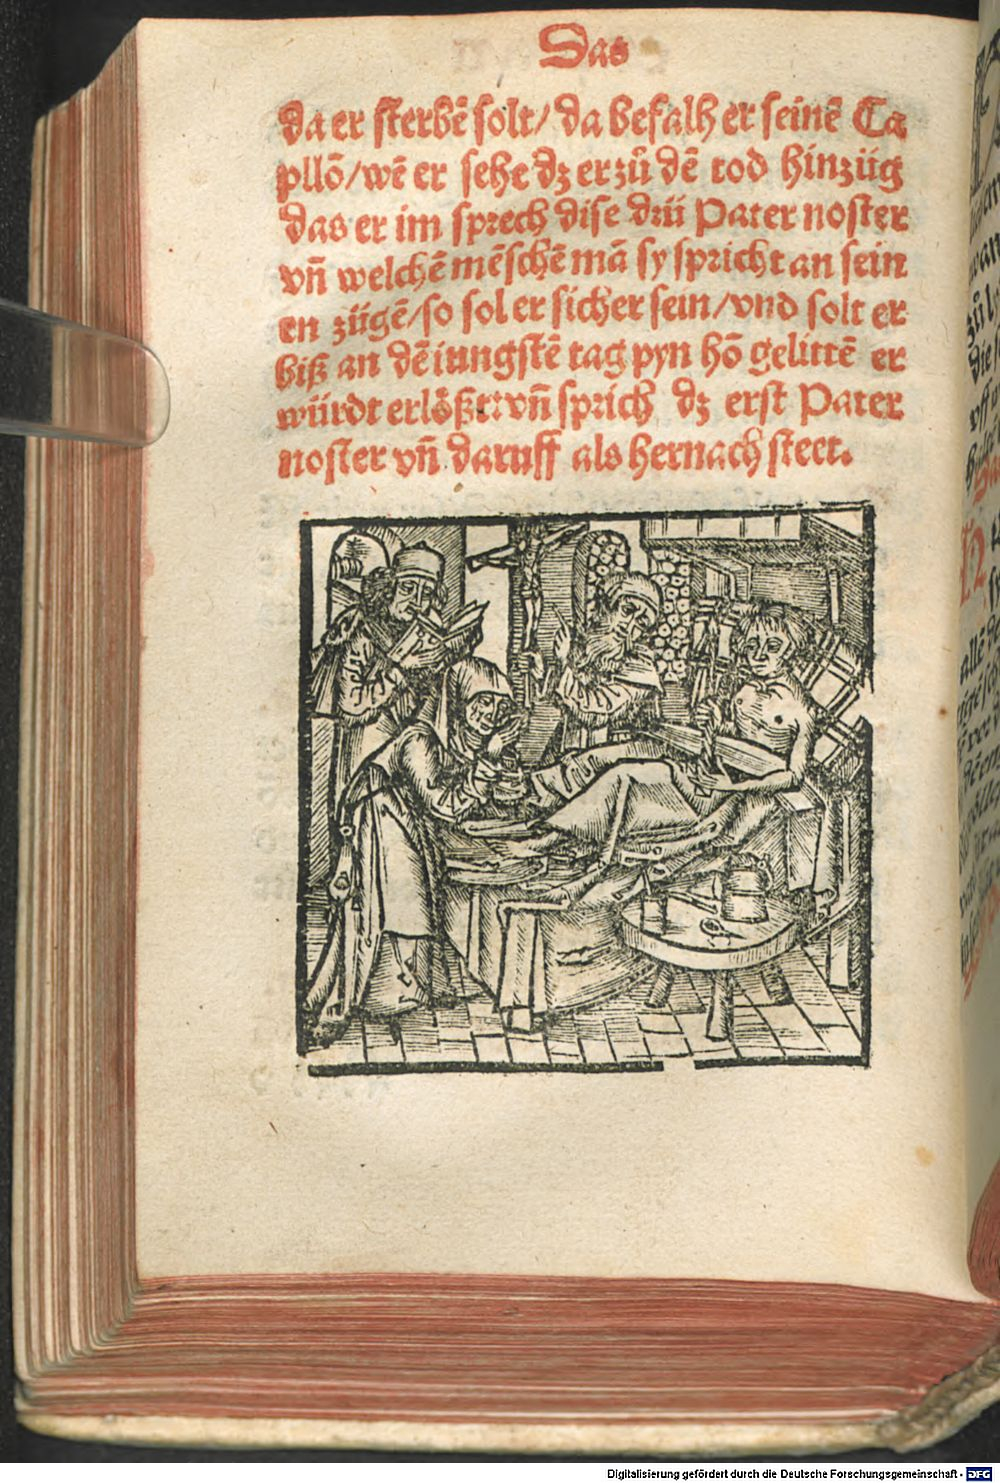 Das
da er sterbē solt/ da befalh er seinē Ca
pllō/wē er sehe dz er zů dē tod hinzüg
das er im sprech dise drü Pater noster
vñ welchē mēschē mā sy spricht an sein
en zügē/so sol er sicher sein/vnd solt er
biß an dē iungstē tag pyn hō gelittē er
würdt erlößt: vñ sprich dz erst Pater
noster vñ daruff als hernach steet.
Digitalisierung gefördert durch die Deutsche Forschungsgemeinschaft - DFG